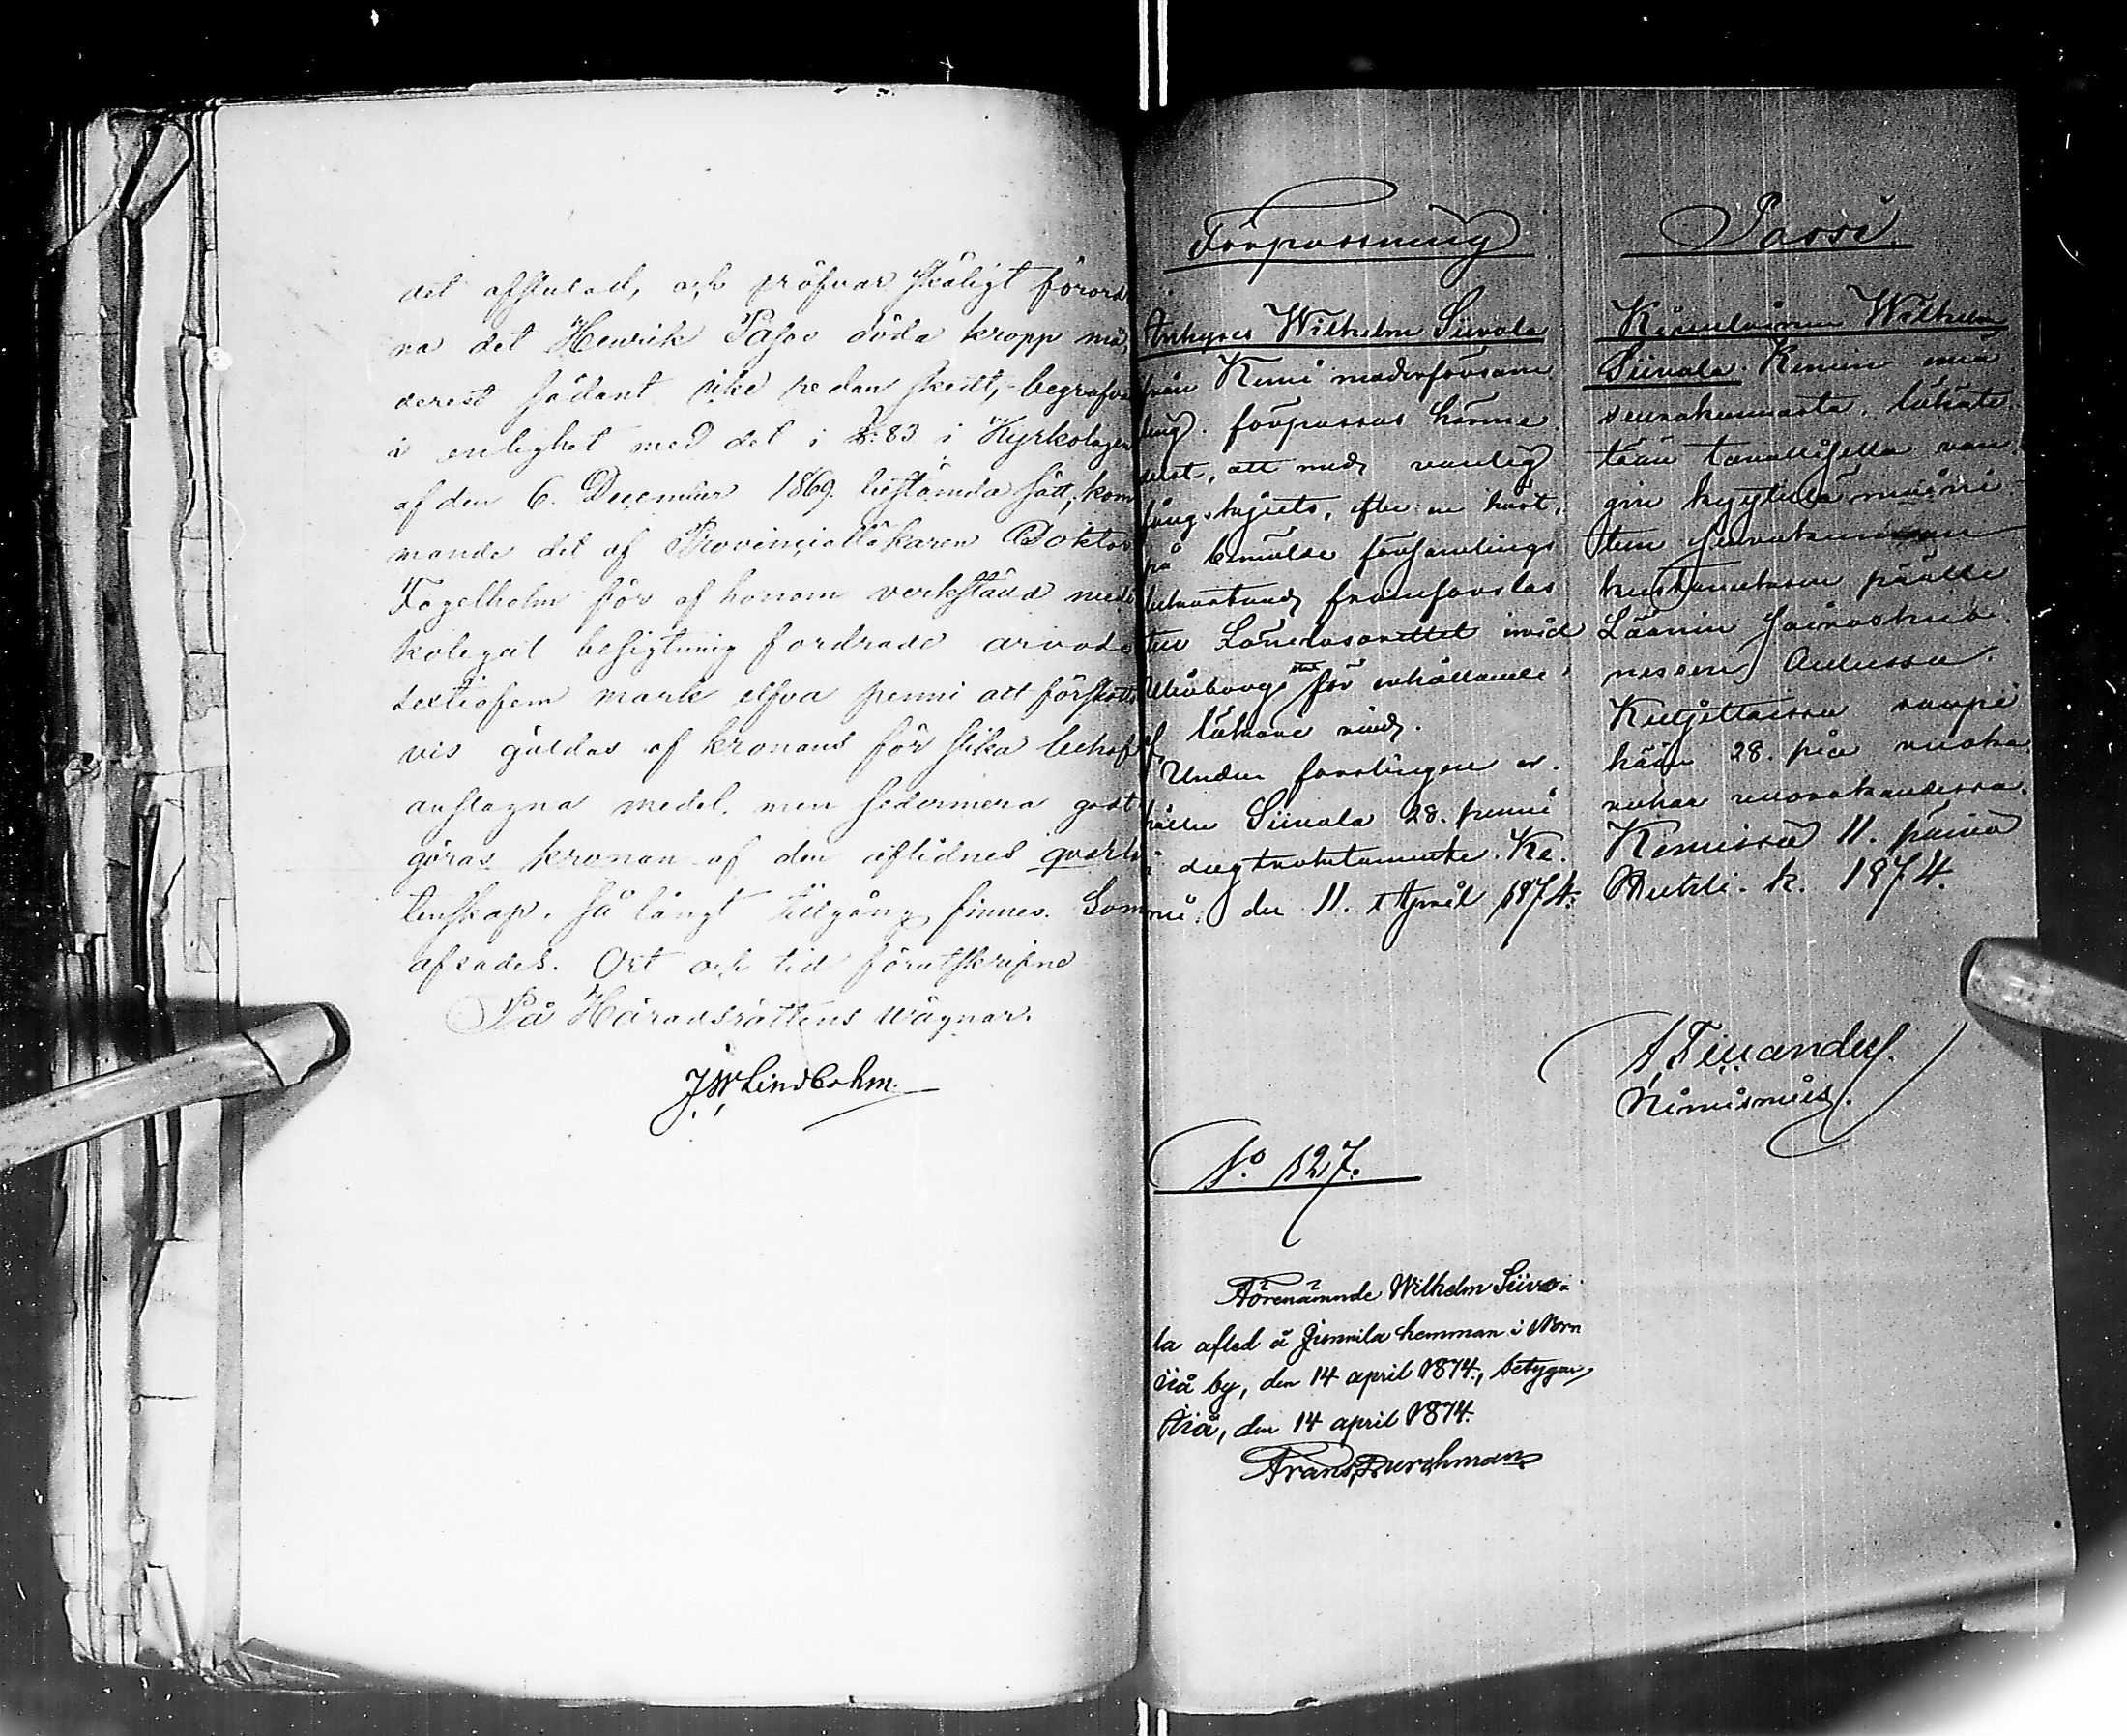 det afslutad, och pröfvar skäligt förord
na det Henrik Pasos döda kropp må,
derest sådant icke redan skedt, begrafvas
i enlighet med det i §: 83 i Kyrkolagen
af den 6. December 1869. bestämda sätt; kom
mande det af Provinciallakaren Doktor
Fogelholm för af honom verkstäld medi
kolegal besigtning fordrade arvode
sextiofem mark elfva penni att förskotts
vis guldas af kronans för slika behof
anslagna medel, men sedermera godt
göras kronan af den aflidnes qvarlå
tenskap, så långt tillgång finnes. Som
afsades. Ort och tid förutskrifne
På Häradsrättens wägnar.
J W Lindbohm.
Förpassning
Inhyses Wilhelm Siivola
från Kemi moderförsam
ling. förpassas härme
delst, att med vanlig
fångskjuts, efter en kort,
på bemälde församlings
bekostnad framforslas
till Länelasarettet invid
Uleåborgs stad för erhållande
af läkare vård.
Under forslingen er.
håller Siivola 28. penni
i dagtraktamente. Ke.
mi. den 11. April 1874.
Passi.
Wilhelm
Siivola. Kemin emä
seurakunnasta, lähäte
tään tavallisella van.
gin kyytillä
tem seurakunnan
kustannuksen päälle
Läänin
neseen Oulussa.
Kuljettaissa saapi
hän 28. piä ruoka
rahaa vuorokaudessa.
Kemissä 11. päivä
Huhti. k. 1874.
Nimismies.
No. 127.
Förenämnde Wilhelm Siivo-
la afled å Junnila hemman i Norra
Iiå by, den 14 april 1874, betygar,
Iiå, den 14 april 1874.
Frans Durchman